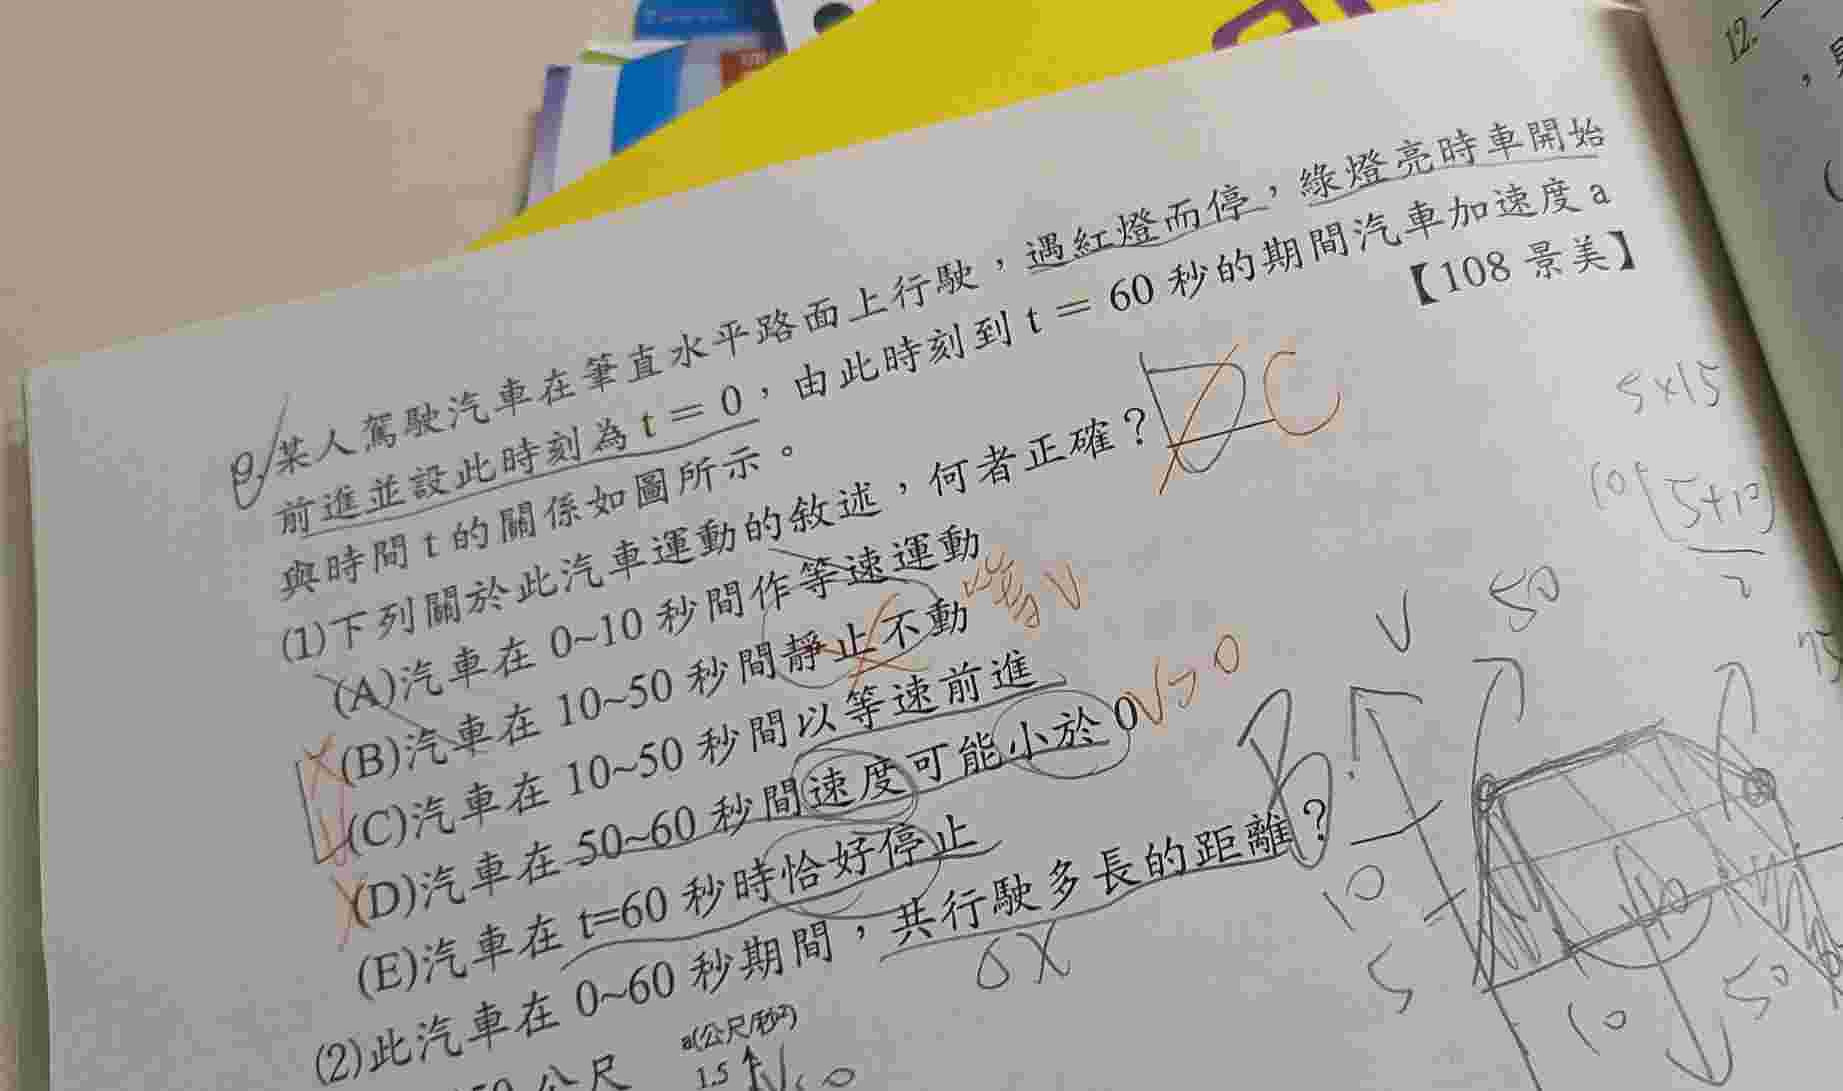 某人駕駛汽車在筆直水平路面上行駛，遇紅燈而停，綠燈亮時車開始
前進並設此時刻為 t = 0，由此時刻到 t = 60 秒的期間汽車加速度 a
與時間 t 的關係如圖所示。
【108 景美】
(1)下列關於此汽車運動的敘述，何者正確？
C
(A)汽車在 0~10 秒間作等速運動
(B)汽車在 10~50 秒間靜止不動
等V
(C)汽車在 10~50 秒間以等速前進
(D)汽車在 50~60 秒間速度可能小於 0
V>0
(E)汽車在 t=60 秒時恰好停止
(2)此汽車在 0~60 秒期間，共行駛多長的距離？
B
ΔX
公尺
a(公尺/秒2)
1.5
12.
5×15
V
50
10
5
10
50